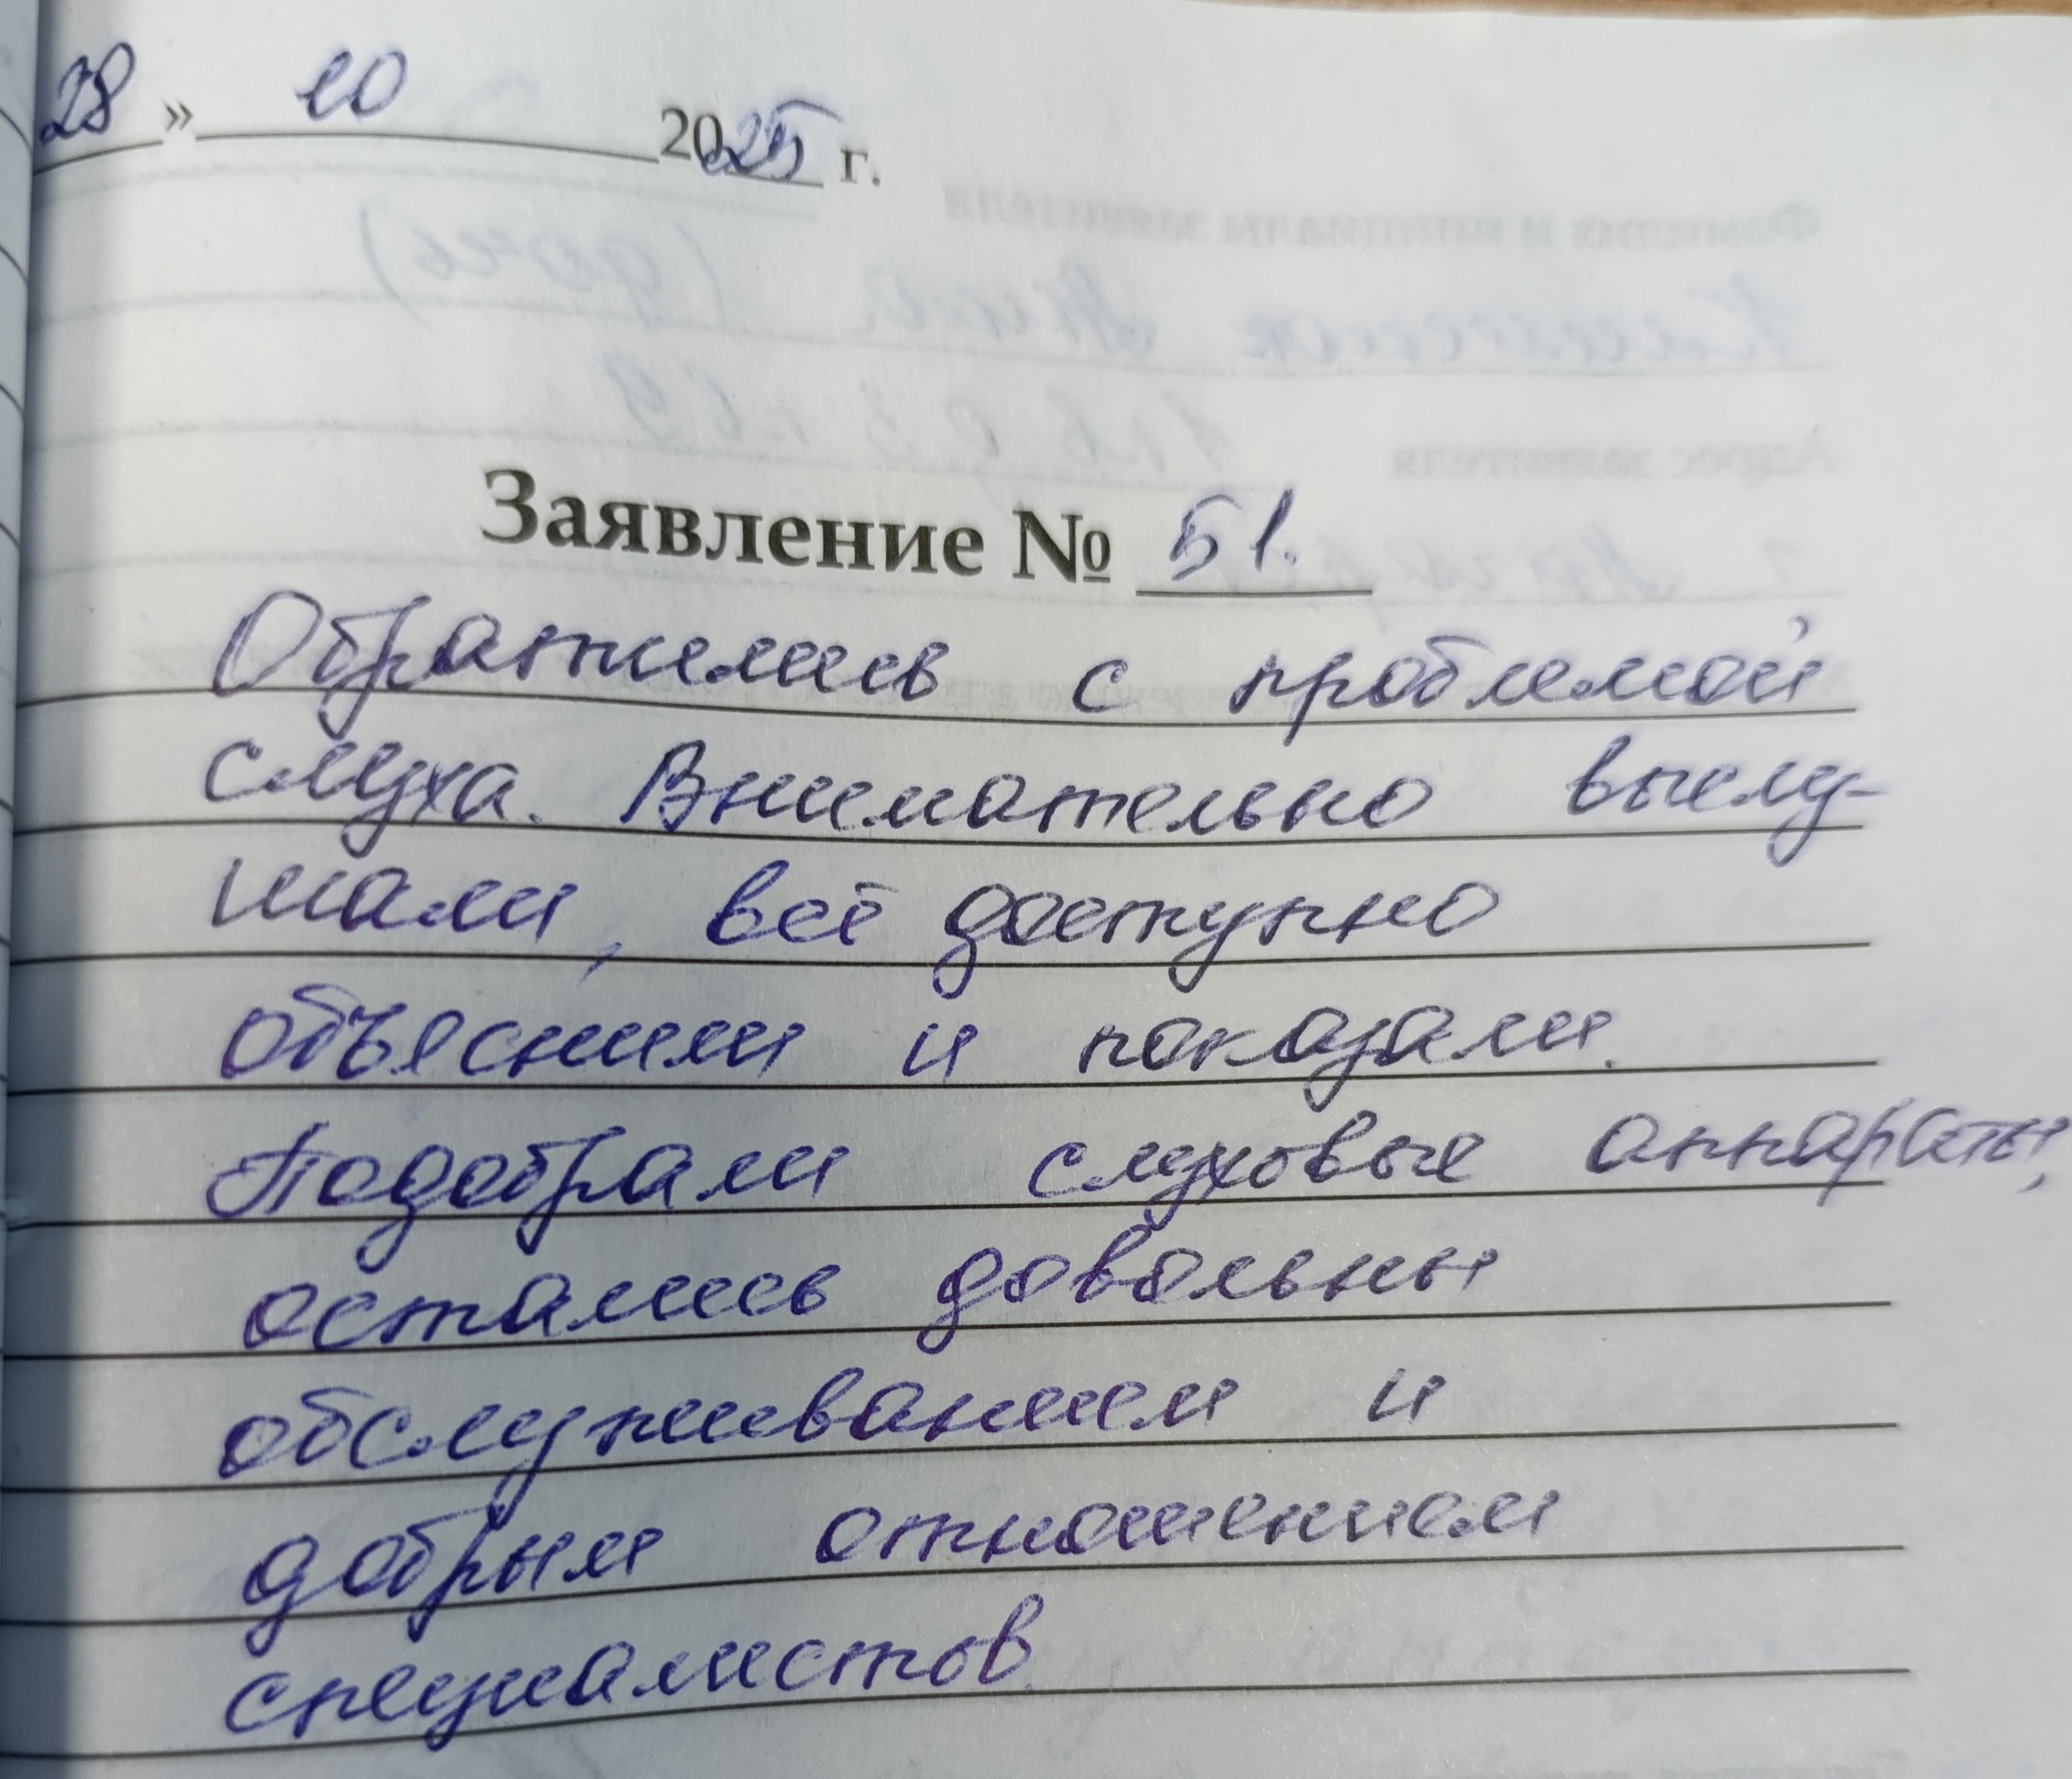 28 » 10 2025 г.
Заявление № 51.
Обратились с проблемой
слуха. Внимательно выслу-
шали, всё доступно
объяснили и показали.
Подобрали слуховые аппараты,
остались довольны
обслуживанием и
добрым отношением
специалистов.